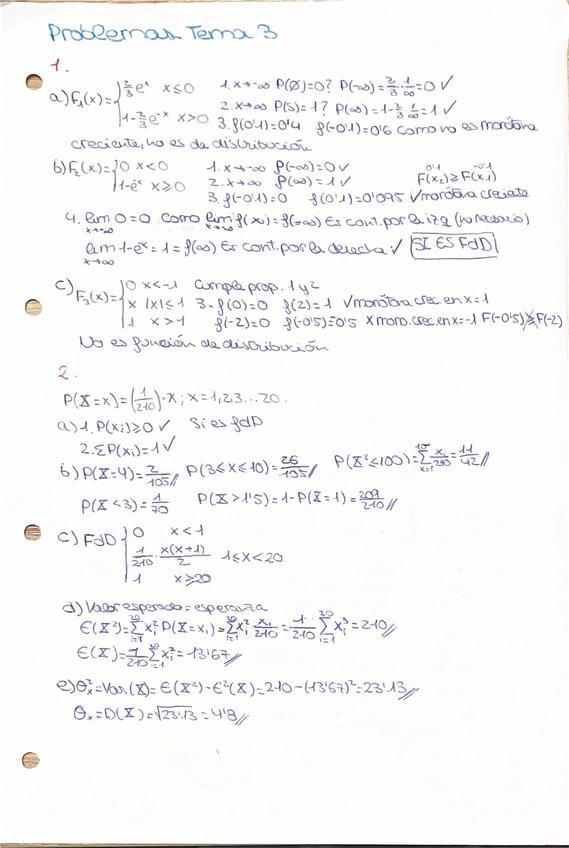 Problemas Tema 3
1.
a) F₁(x) = { 2/3 eˣ x ≤ 0 1. x→-∞ P(Ø)=0? P(-∞) = 2/3 · 1/∞ = 0 ✓
1 - 2/3 e⁻ˣ x > 0 2. x→∞ P(S)=1? P(∞) = 1 - 2/3 · 1/∞ = 1 ✓
3. f(0'1) = 0'4 f(-0'1) = 0'6 como no es monótona
creciente, no es de distribución
b) F₂(x) = { 0 x < 0 1. x→-∞ f(-∞) = 0 ✓
1-e⁻ˣ x ≥ 0 2. x→∞ f(∞) = 1 ✓ F(x₂) ≥ F(x₁) 0'1 -0'1
3. f(-0'1) = 0 f(0'1) = 0'095 ✓ monótona creciente
4. lim x→-∞ 0 = 0 como lim x→-∞ f(x) = f(-∞) Es cont. por la izq (no necesario)
lim x→∞ 1-e⁻ˣ = 1 = f(∞) Es cont. por la derecha ✓ SI ES FdD
c) F₃(x) = { 0 x < -1 Cumple prop. 1 y 2
x |x| ≤ 1 3. f(0) = 0 f(2) = 1 ✓ monótona crec. en x = 1
1 x > 1 f(-2) = 0 f(-0'5) = -0'5 X mono. crec. en x = -1 F(-0'5) ≱ F(-2)
No es función de distribución
2.
P(X = x) = (1/210) · x ; x = 1, 2, 3 ... 20.
a) 1. P(xᵢ) ≥ 0 ✓ Si es fdD
2. ΣP(xᵢ) = 1 ✓
b) P(X = 4) = 2/105 // P(3 ≤ x ≤ 10) = 26/105 // P(X² ≤ 100) = Σ x=1 10 xᵢ/210 = 11/42 //
P(X < 3) = 1/70 P(X > 1'5) = 1 - P(X = 1) = 209/210 //
c) FdD { 0 x < 1
1/210 · x(x+1)/2 1 ≤ x < 20
1 x ≥ 20
d) Valor esperado = esperanza
E(X²) = Σ i=1 20 xᵢ² P(X = xᵢ) = Σ i=1 20 xᵢ² xᵢ/210 = 1/210 Σ i=1 20 xᵢ³ = 210 //
E(X) = 1/210 Σ i=1 20 xᵢ² = 13'67 //
e) θₓ² = Var(X) = E(X²) - E²(X) = 210 - (13'67)² = 23'13 //
θₓ = D(X) = √23'13 = 4'8 //